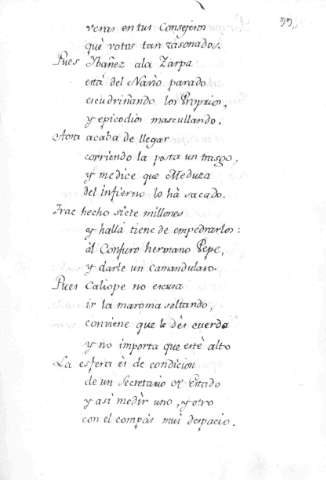 99,
veras en tus Consejeros
què votos tan rasonados.
Pues Ybáñez ala Zarpa
està del Navio parado
escudriñando los Propios,
y episodios mascullando.
Aora acaba de llegar
corriendo la posta un trasgo,
y me dice que Medusa
del infierno lo hà sacado.
Trae hecho siete millones
y hallà tiene de empedrarlos:
al Conjuro hermano Pepe,
y darle un camandulazo.
Pues Caliope no escusa
ir la maroma saltando,
conviene que le dès cuerda
y no importa que estè alto
La esfera ès de condicion
de un Secretario de Estado
y asi medir uno, y otro
con el compàs mui despacio.